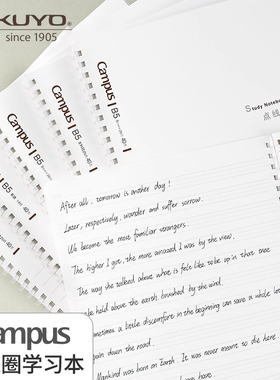 KUYO
since 1905
Campus
B5
Campus
B5
Campus
B5
Campus
Study Noteb
点线
After all, tomorrow is another day!
Later, respectively, wander and suffer sorrow.
We become the most familiar strangers.
The higher I got, the more amazed I was by the view.
The way she talked about what is feels like to be up in that tree
held above the earth, brushed by the wind.
Sometimes a little discomfort in the beginning can save a whole
pain down the road.
Mankind was born on Earth. It was never meant to die here.
ampus
圈学习本